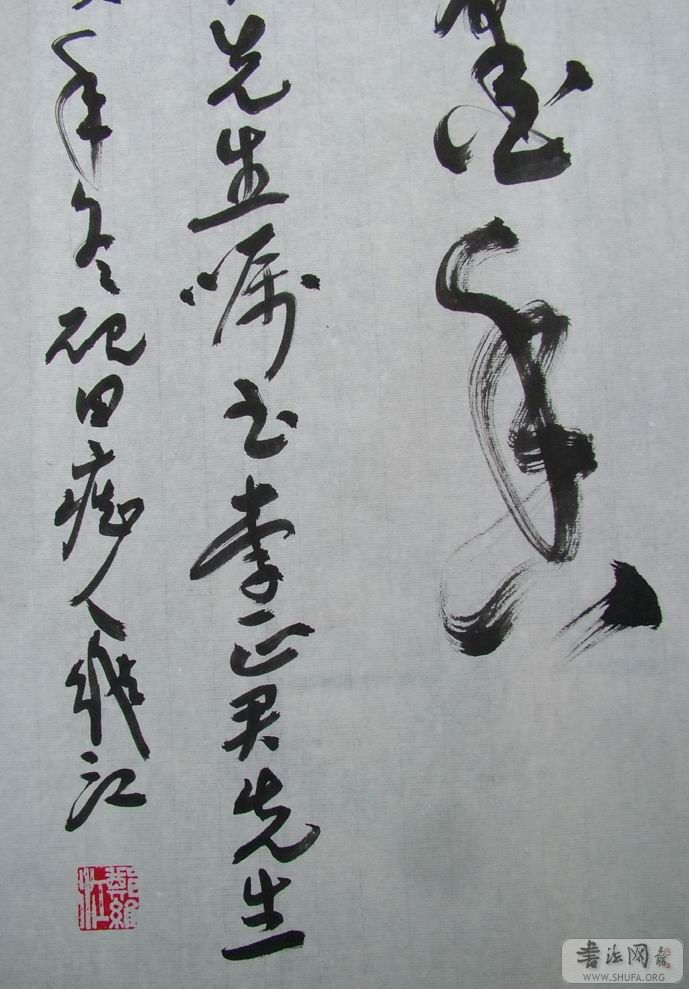 先生嘱书李正先生
年冬砚田痴人维江
书法网
WWW.SHUFA.ORG